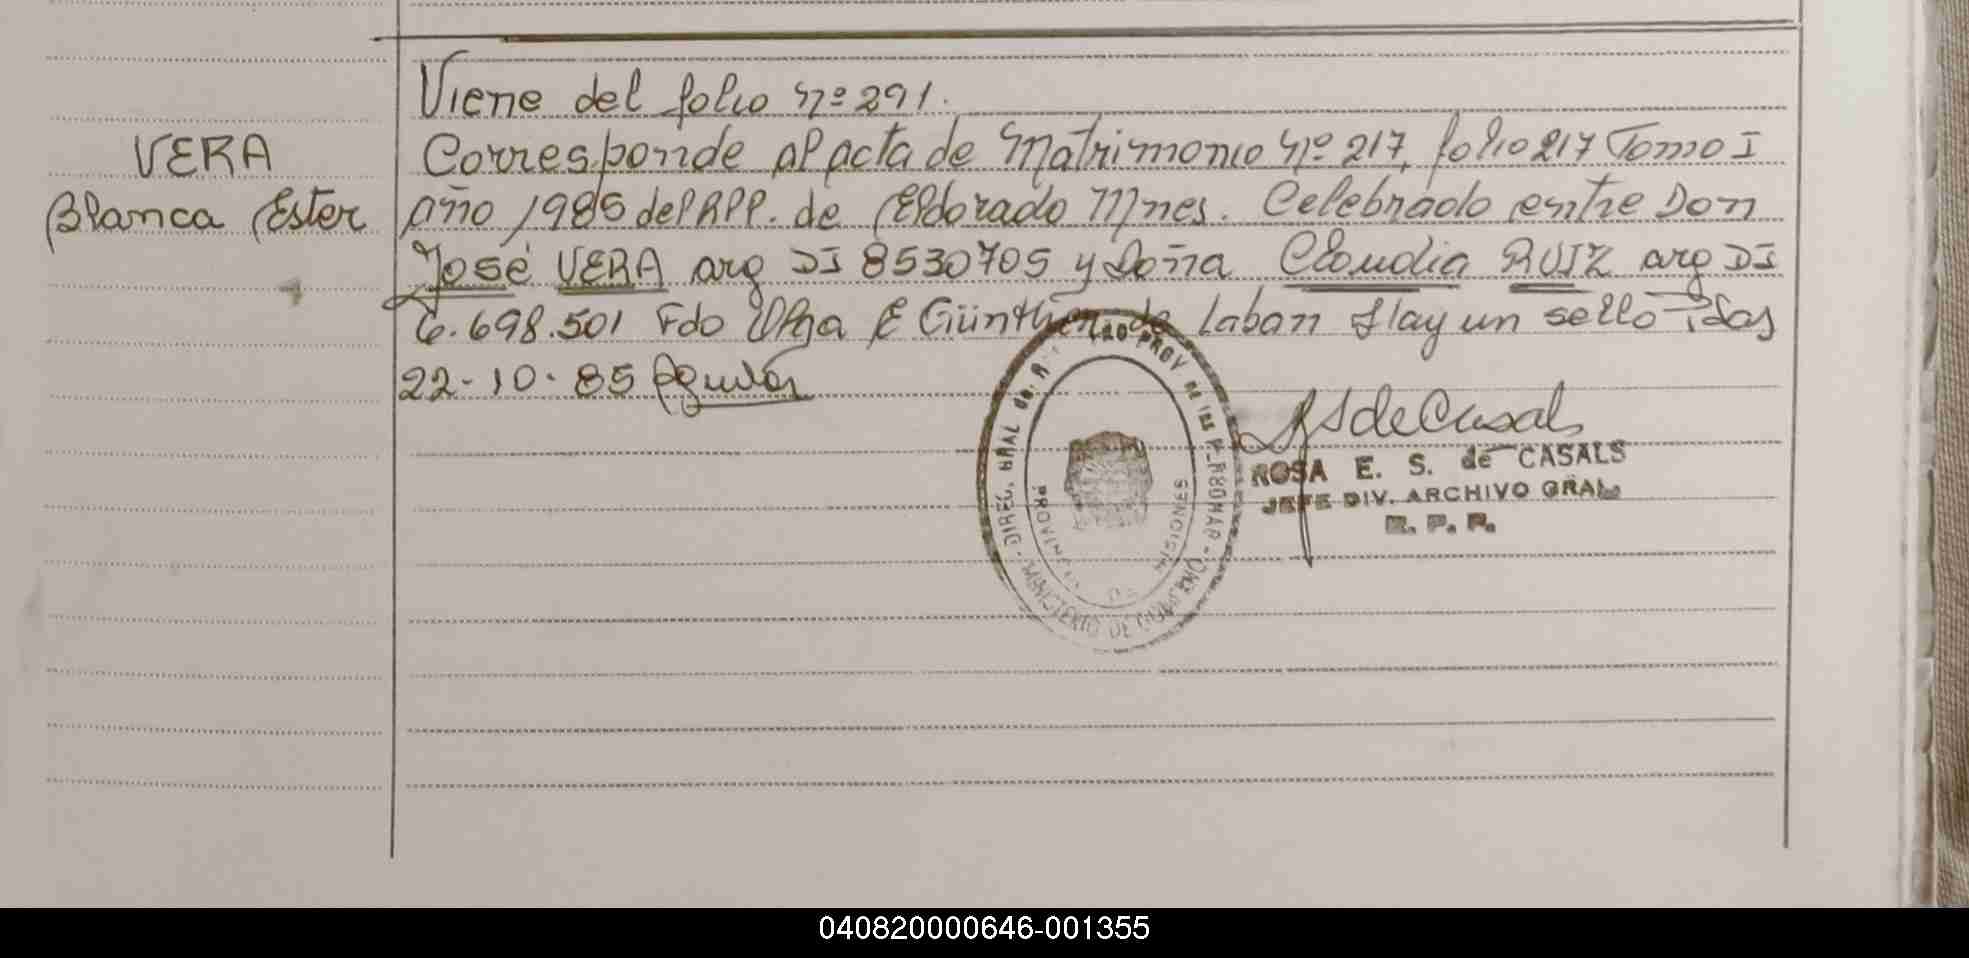 Viene del folio Nº 291.
VERA
Corresponde al acta de Matrimonio Nº 217, folio 217 Tomo I
Blanca Ester
año 1985 del RPP. de Eldorado Mnes. Celebrado entre Don
José VERA arg DI 8530705 y Doña Claudia RUIZ arg DI
6.698.501 Fdo Olga E Günther de Laban Hay un sello Pdas
22-10-85
ROSA E. S. de CASALS
JEFE DIV. ARCHIVO GRAL
R. P. P.
PROV DE LAS PERSONAS
MINISTERIO DE GOBIERNO
PROVINCIA DE MISIONES
040820000646-001355